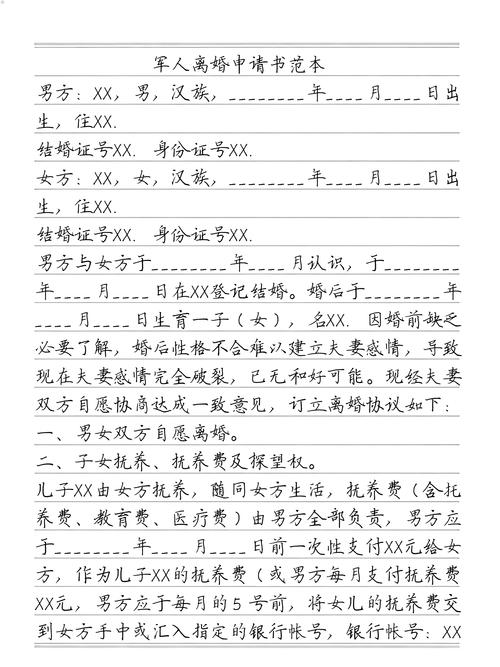 军人离婚申请书范本
男方：XX，男，汉族，________年____月____日出
生，住XX.
结婚证号XX.  身份证号XX.
女方：XX，女，汉族，________年____月____日出
生，住XX.
结婚证号XX.  身份证号XX.
男方与女方于________年____月认识，于________
年____月____日在XX登记结婚。婚后于________年
____月____日生育一子（女），名XX. 因婚前缺乏
必要了解，婚后性格不合难以建立夫妻感情，导致
现在夫妻感情完全破裂，已无和好可能。现经夫妻
双方自愿协商达成一致意见，订立离婚协议如下：
一、男女双方自愿离婚。
二、子女抚养、抚养费及探望权。
儿子XX由女方抚养，随同女方生活，抚养费（含托
养费、教育费、医疗费）由男方全部负责，男方应
于________年____月____日前一次性支付XX元给女
方，作为儿子XX的抚养费（或男方每月支付抚养费
XX元，男方应于每月的5号前，将女儿的抚养费交
到女方手中或汇入指定的银行帐号，银行帐号：XX